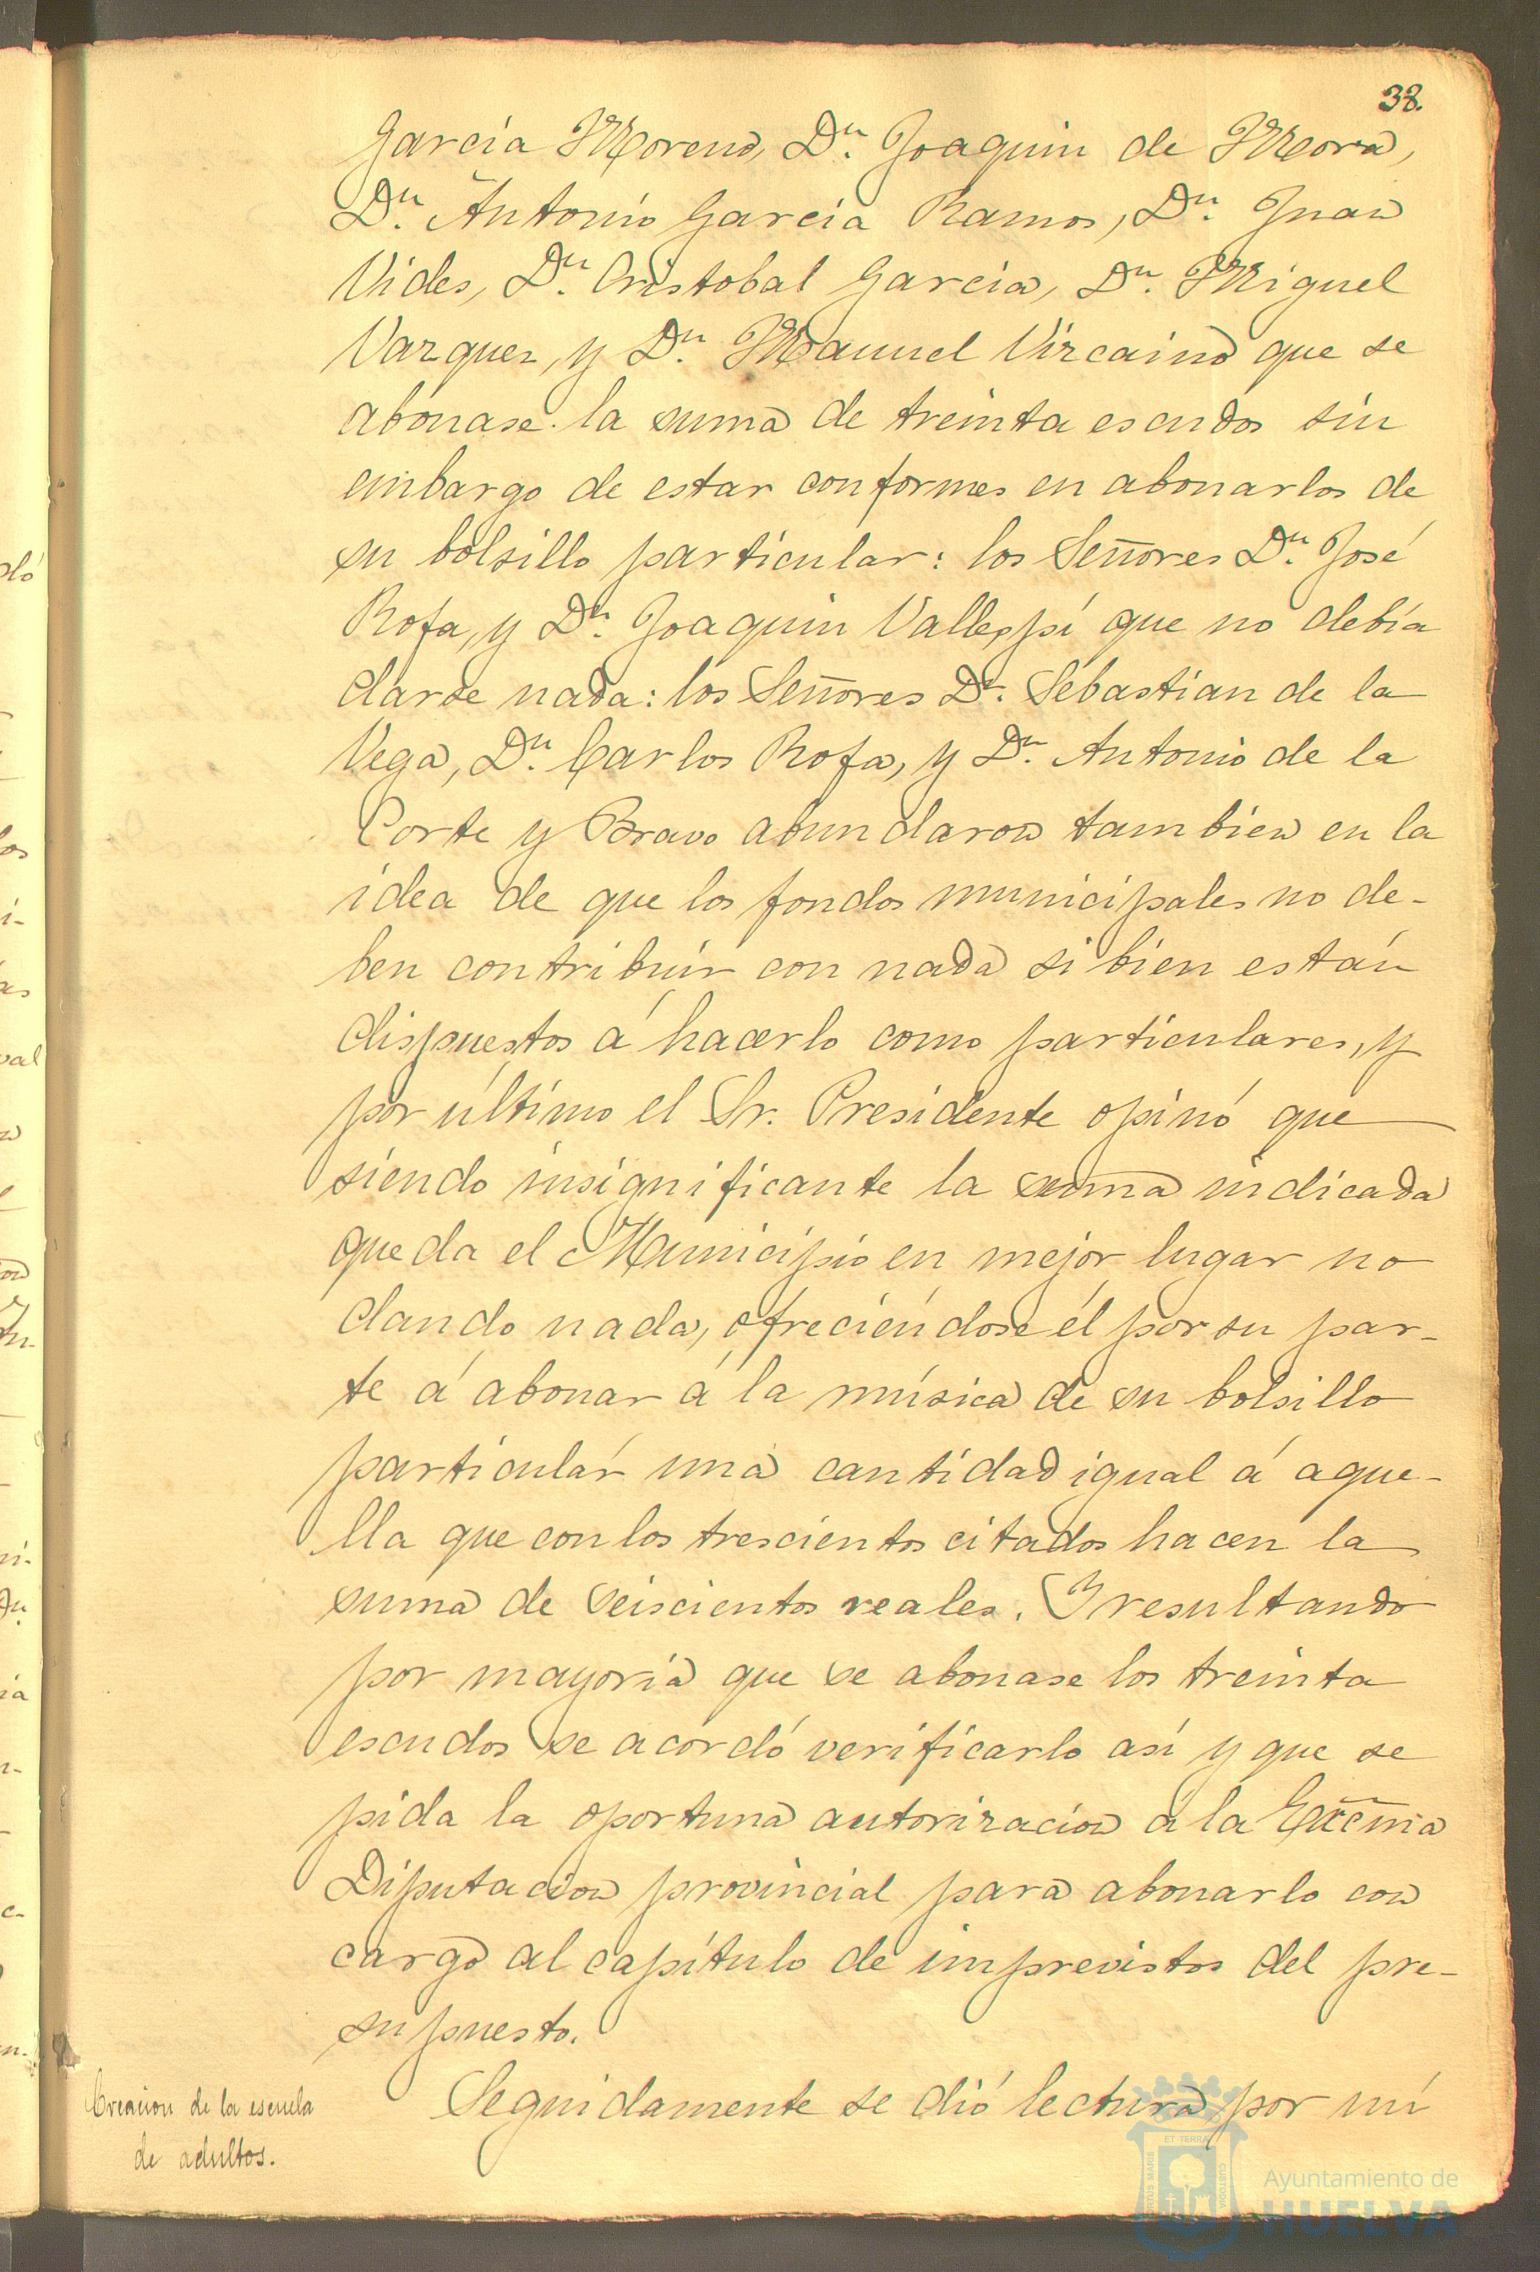 38.
Garcia Moreno, Dn. Joaquin de Mora,
Dn. Antonio Garcia Ramos, Dn. Juan
Vides, Dn. Cristobal Garcia, Dn. Miguel
Vazquez, y Dn. Manuel Vizcaino que se
abonase la suma de treinta escudos sin
embargo de estar conformes en abonarlos de
su bolsillo particular: los Señores Dn. José
Rofa, y Dn. Joaquin Vallespí que no debía
darse nada: los Señores Dn. Sebastian de la
Vega, Dn. Carlos Rofa, y Dn. Antonio de la
Corte y Bravo abundaron tambien en la
idea de que los fondos municipales no de-
ben contribuir con nada si bien están
dispuestos á hacerlo como particulares, y
por último el Sr. Presidente opinó que
siendo insignificante la suma indicada
queda el Municipio en mejor lugar no
dando nada, ofreciéndose él por su par-
te á abonar á la música de su bolsillo
particular una cantidad igual á aque-
lla que con los trescientos citados hacen la
suma de seiscientos reales. Y resultando
por mayoría que se abonase los treinta
escudos se acordó verificarlo así y que se
pida la oportuna autorizacion á la Excma
Diputacion provincial para abonarlo con
cargo al capítulo de imprevistos del pre-
supuesto.
Creacion de la escuela
de adultos.
Seguidamente se dió lectura por mí
ET TERRAE
PORTUS MARIS
CUSTODIA
Ayuntamiento de
HUELVA